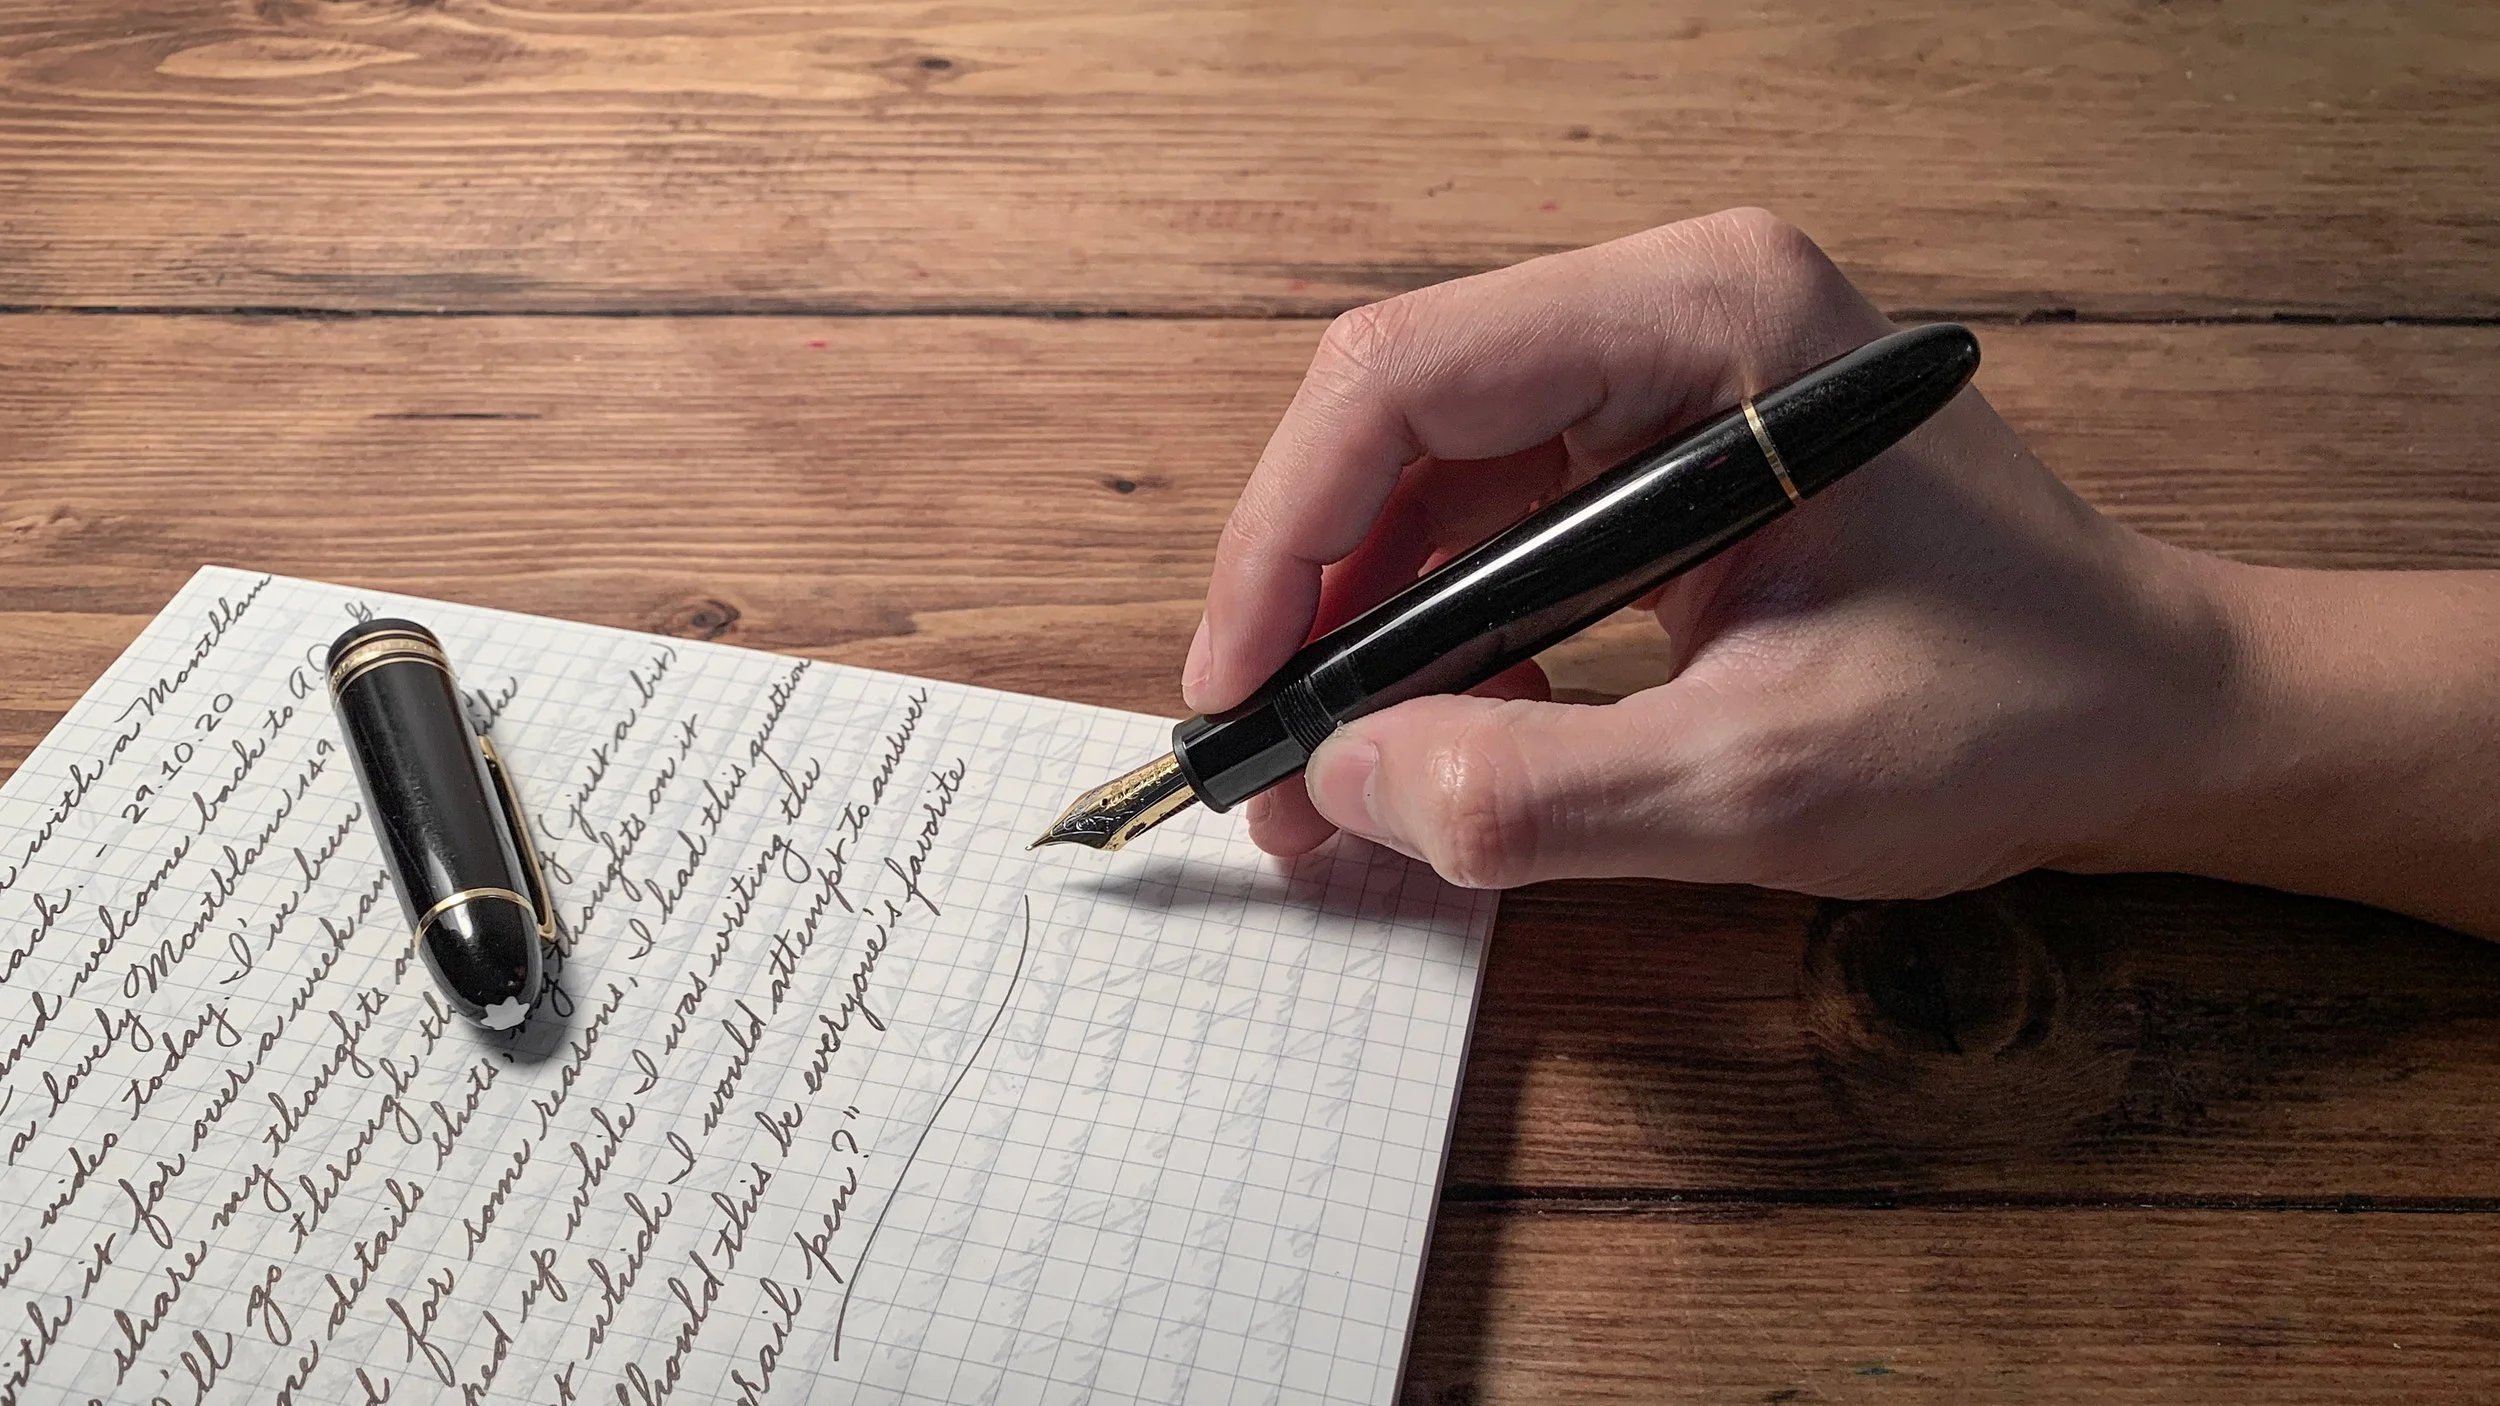 with a Montblan
29.10.20
and welcome back to a. G.
a lovely Montblanc 149
video today. I've been
with it for over a week an like
share my thoughts on
I'll go through th y (just a bit)
details shots, my thoughts on it
for some reasons, I had this question
up while I was writing the
which I would attempt to answer
should this be everyone's favorite
grail pen?"